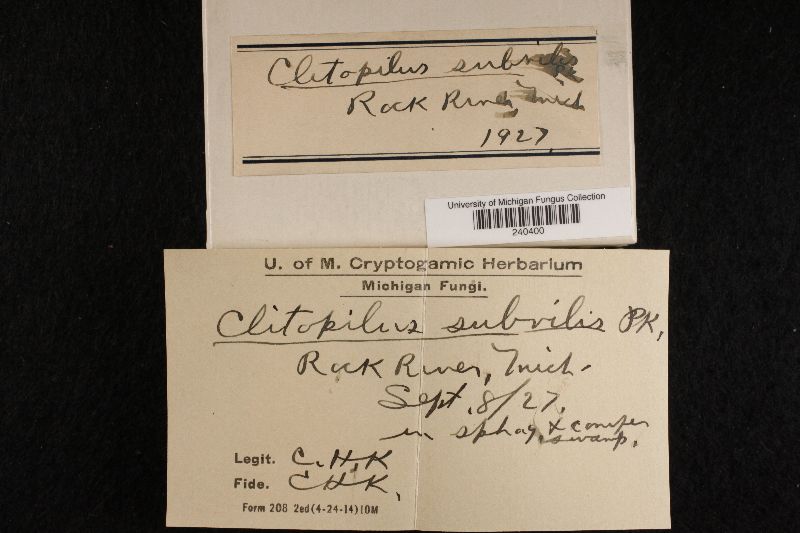 Clitopilus subvilis Pk
Rock River, Mich
1927
University of Michigan Fungus Collection
240400
U. of M. Cryptogamic Herbarium
Michigan Fungi.
Clitopilus subvilis PK.
Rock River, Mich.
Sept. 8/27.
in sphag. & conifer
swamp.
Legit. C.H.K
Fide. CHK.
Form 208 2ed(4-24-14)10M